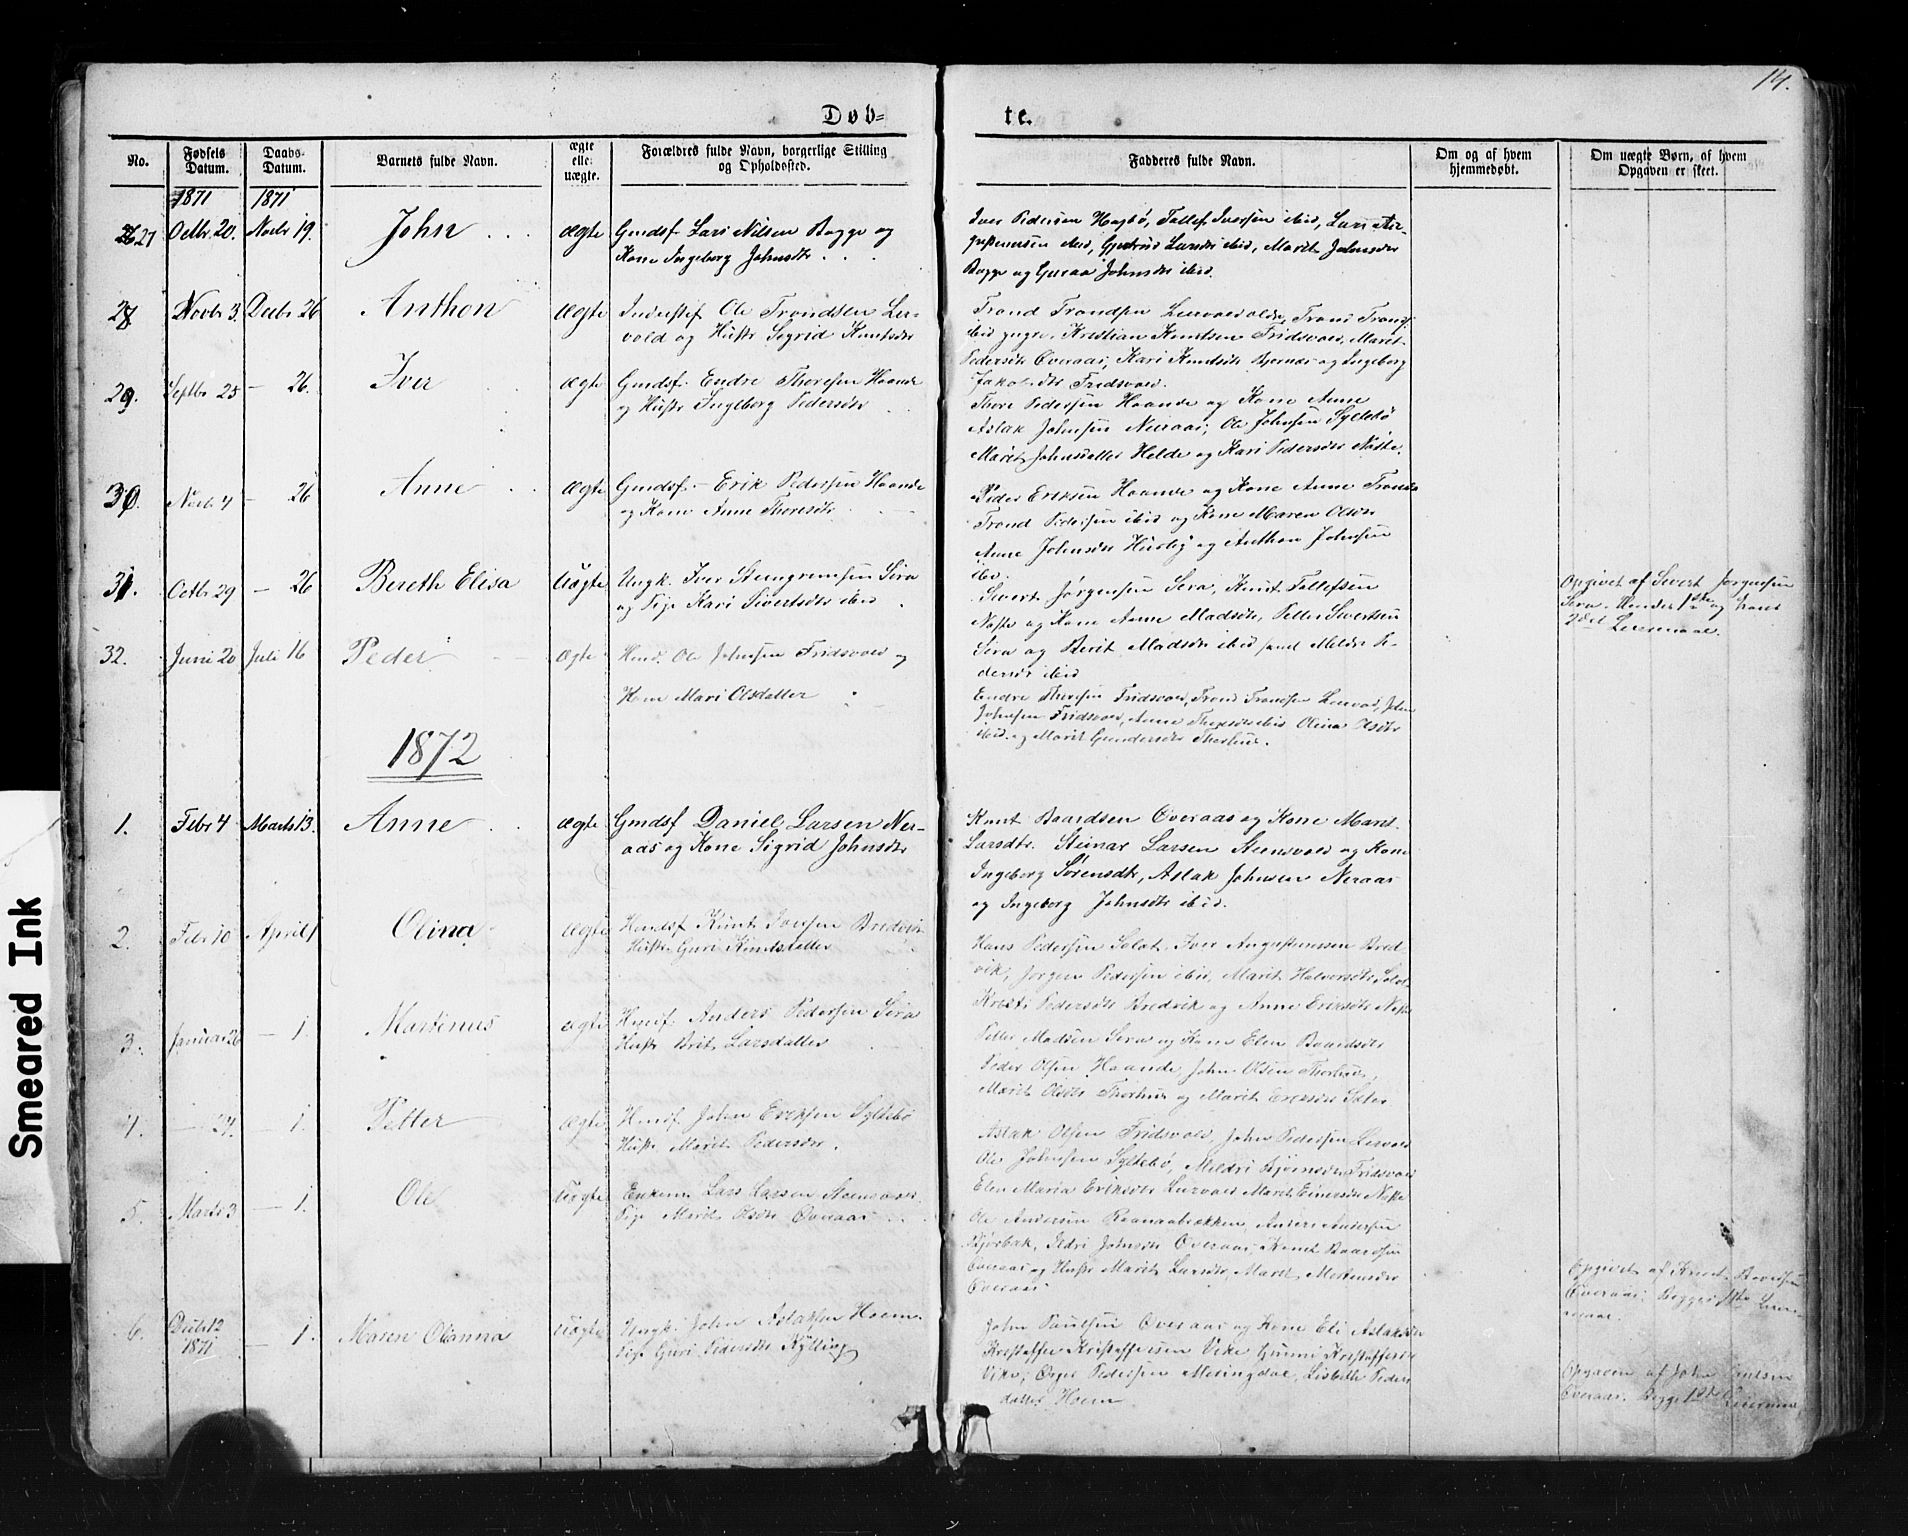 14.
Døb=
te.
No.
Fødsels Datum.
Daabs-Datum.
Barnets fulde Navn.
ægte elle: uægte.
Forældres fulde Navn, borgerlige Stilling og Opholdssted.
Fadderes fulde Navn.
Om og af hvem hjemmedøbt.
Om uægte Børn, af hvem Opgaven er skeet.
1871 1871
27 Octbr 20. Novbr 19. John ægte Gmdsf Lars Nilsen Bogge og
Kone Ingeborg Johnsdtr
Iver Pedersen Hagbø, Tollef Iversen ibid, Lars
ibid, Larsdtr ibid, Marit Johnsdtr
Bogge og Guraa Johnsdtr ibid.
28 Novbr 3. Decbr 26 Anthon ægte Inderstsf Ole Trondsen Ler-
vold og Hustr Sigrid Knutsdtr
Trond Trondsen
ibid yngre, Kristian Knutsen Fridsvold, Marit
Pedersdtr Overaas, Kari Knudsdtr og Ingeborg
Jakobsdtr Fridsvold.
29. Septbr 25 — 26. Iver ægte Gmdsf. Endre Thoresen Haande
og Hustr Ingeborg Pedersdtr
Thore Pedersen Haande og Kone Anne
Aslak Johnsen Neraas, Ole Johnsen Syltebø
Marit Johnsdatter Helde og Kari Pedersdtr Nøste.
30. Novb. 4 — 26 Anne ægte Gmdsf. Erik Pedersen Haande
og Kone Anne Thoresdtr
Peder Eriksen Haande og Kone Anne
Trond Pedersen ibid og Kone Maren Olsdtr
Anne Johnsdtr og Anthon Johnsen
ibid.
31. Octbr 29 — 26 Bereth Elisa Uægte Ungk. Iver Steingrimsen Sira
og Pige Kari Sivertsdtr ibid
Sivert Jørgensen Sera, Knut Tollefsen
Nøste og Kone Anne Madsdtr, Petter Sivertsen
Sira og Berit Madsdtr ibid samt Mildri Pe-
dersdtr ibid
Opgivet af Sivert Jørgensen
Sera. Hendes 1ste og hans
2det Leiermaal.
32. Juni 20 Juli 16 Peder ægte Husd. Ole Johnsen Fridsvold og
Kone Mari Olsdatter
Endre Thoresen Fridsvold, Trond Trondsen Lervold, John
Johnsen Fridsvold, Anne ibid Olina Olsdtr
ibid. og Marit Gundersdtr Thorhus.
1872
1. Febr 4 Marts 13. Anne ægte Gmdsf Daniel Larsen Ner-
aas og Kone Sigrid Johnsdtr
Knut Baardsen Overaas og Kone Marit
Larsdtr. Steinar Larsen Steensvold og Kone
Ingeborg Sørensdtr, Aslak Johnsen Neraas
og Ingeborg Johnsdtr ibid.
2. Febr 10 April 1 Olina ægte Husmdsf Knut Iversen Bredvik
Hustr Guri Knutsdatter
Hans Pedersen Solat, Iver Augustinussen Bred
vik, Jørgen Pedersen ibid, Marit Halvorsdtr
Kristi Pedersdtr Bredvik og Anne Eriksdtr Nøste
3. Januar 26 — 1. Martinus ægte Anders Pedersen Sira
Hustr Brit Larsdatter
Petter Madsen Sera og Kone Elen Baardsdtr
Peder Olsen Haande, John Olsen Thorhus,
Marit Olsdtr Thorhus og Marit Eriksdtr
4. — 24. — 1. Petter ægte John Eriksen Syltebø
Hustr Marit Pedersdtr.
Aslak Olsen Fridsvold, John Pedersen Lervold
Ole Johnsen Syltebø, Mildri Bjørnsdtr Fridsvold
Elen Maria Eriksdtr Lervold Marit Einersdtr
5. Marts 3 — 1. Ole Uægte Enkem. Lars Larsen Steensvold
Pige Marit Olsdtr Overaas
Ole Andersen Andersen
Ildri Johnsdtr Overaas, Knut Baardsen
Overaas og Hustr Marit Larsdtr, Marit
Overaas
Opgivet af Knut Baardsen
Overaas. Begges 1ste Leier-
maal.
6. Decbr 12 1871 — 1. Maren Olianna Uægte Ungk. John Aslaksen Hoem
Pige Guri Pedersdtr Kylling
John Paulsen Overaas og Kone Eli Aslaksdtr
Kristoffer Kristoffersen Vike
Vike, Pedersen Meringdal, Lisbeth Peders
datter Hoem.
Opgaven af John Paulsen
Overaas. Begges 1ste Leiermaal
Smeared Ink